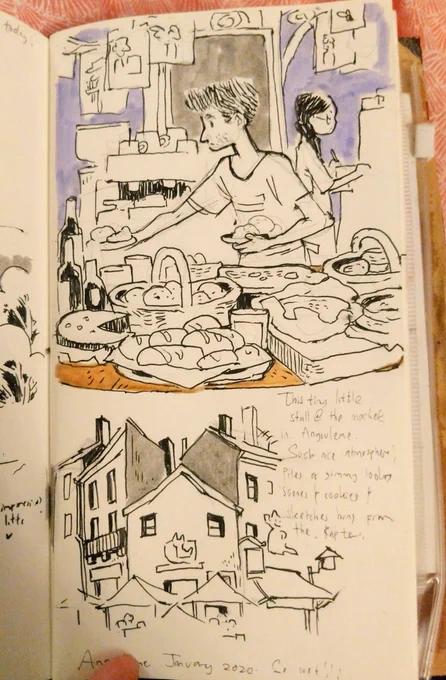 today.
This tiny little
stall @ the market
in Angouleme.
Such nice atmosphere!
Piles of yummy looking
scones & cookies &
sketches hung from
the
January 2020. So wet!!!